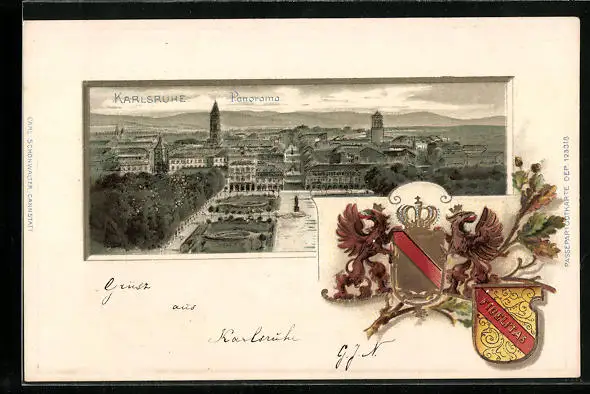 KARLSRUHE Panorama
CARL SCHÖNWALTER, CANNSTATT
PASSEPARTOUTKARTE DEP. 123318
FIDELITAS
Gruss
aus
Karlsruhe
G. J. N.